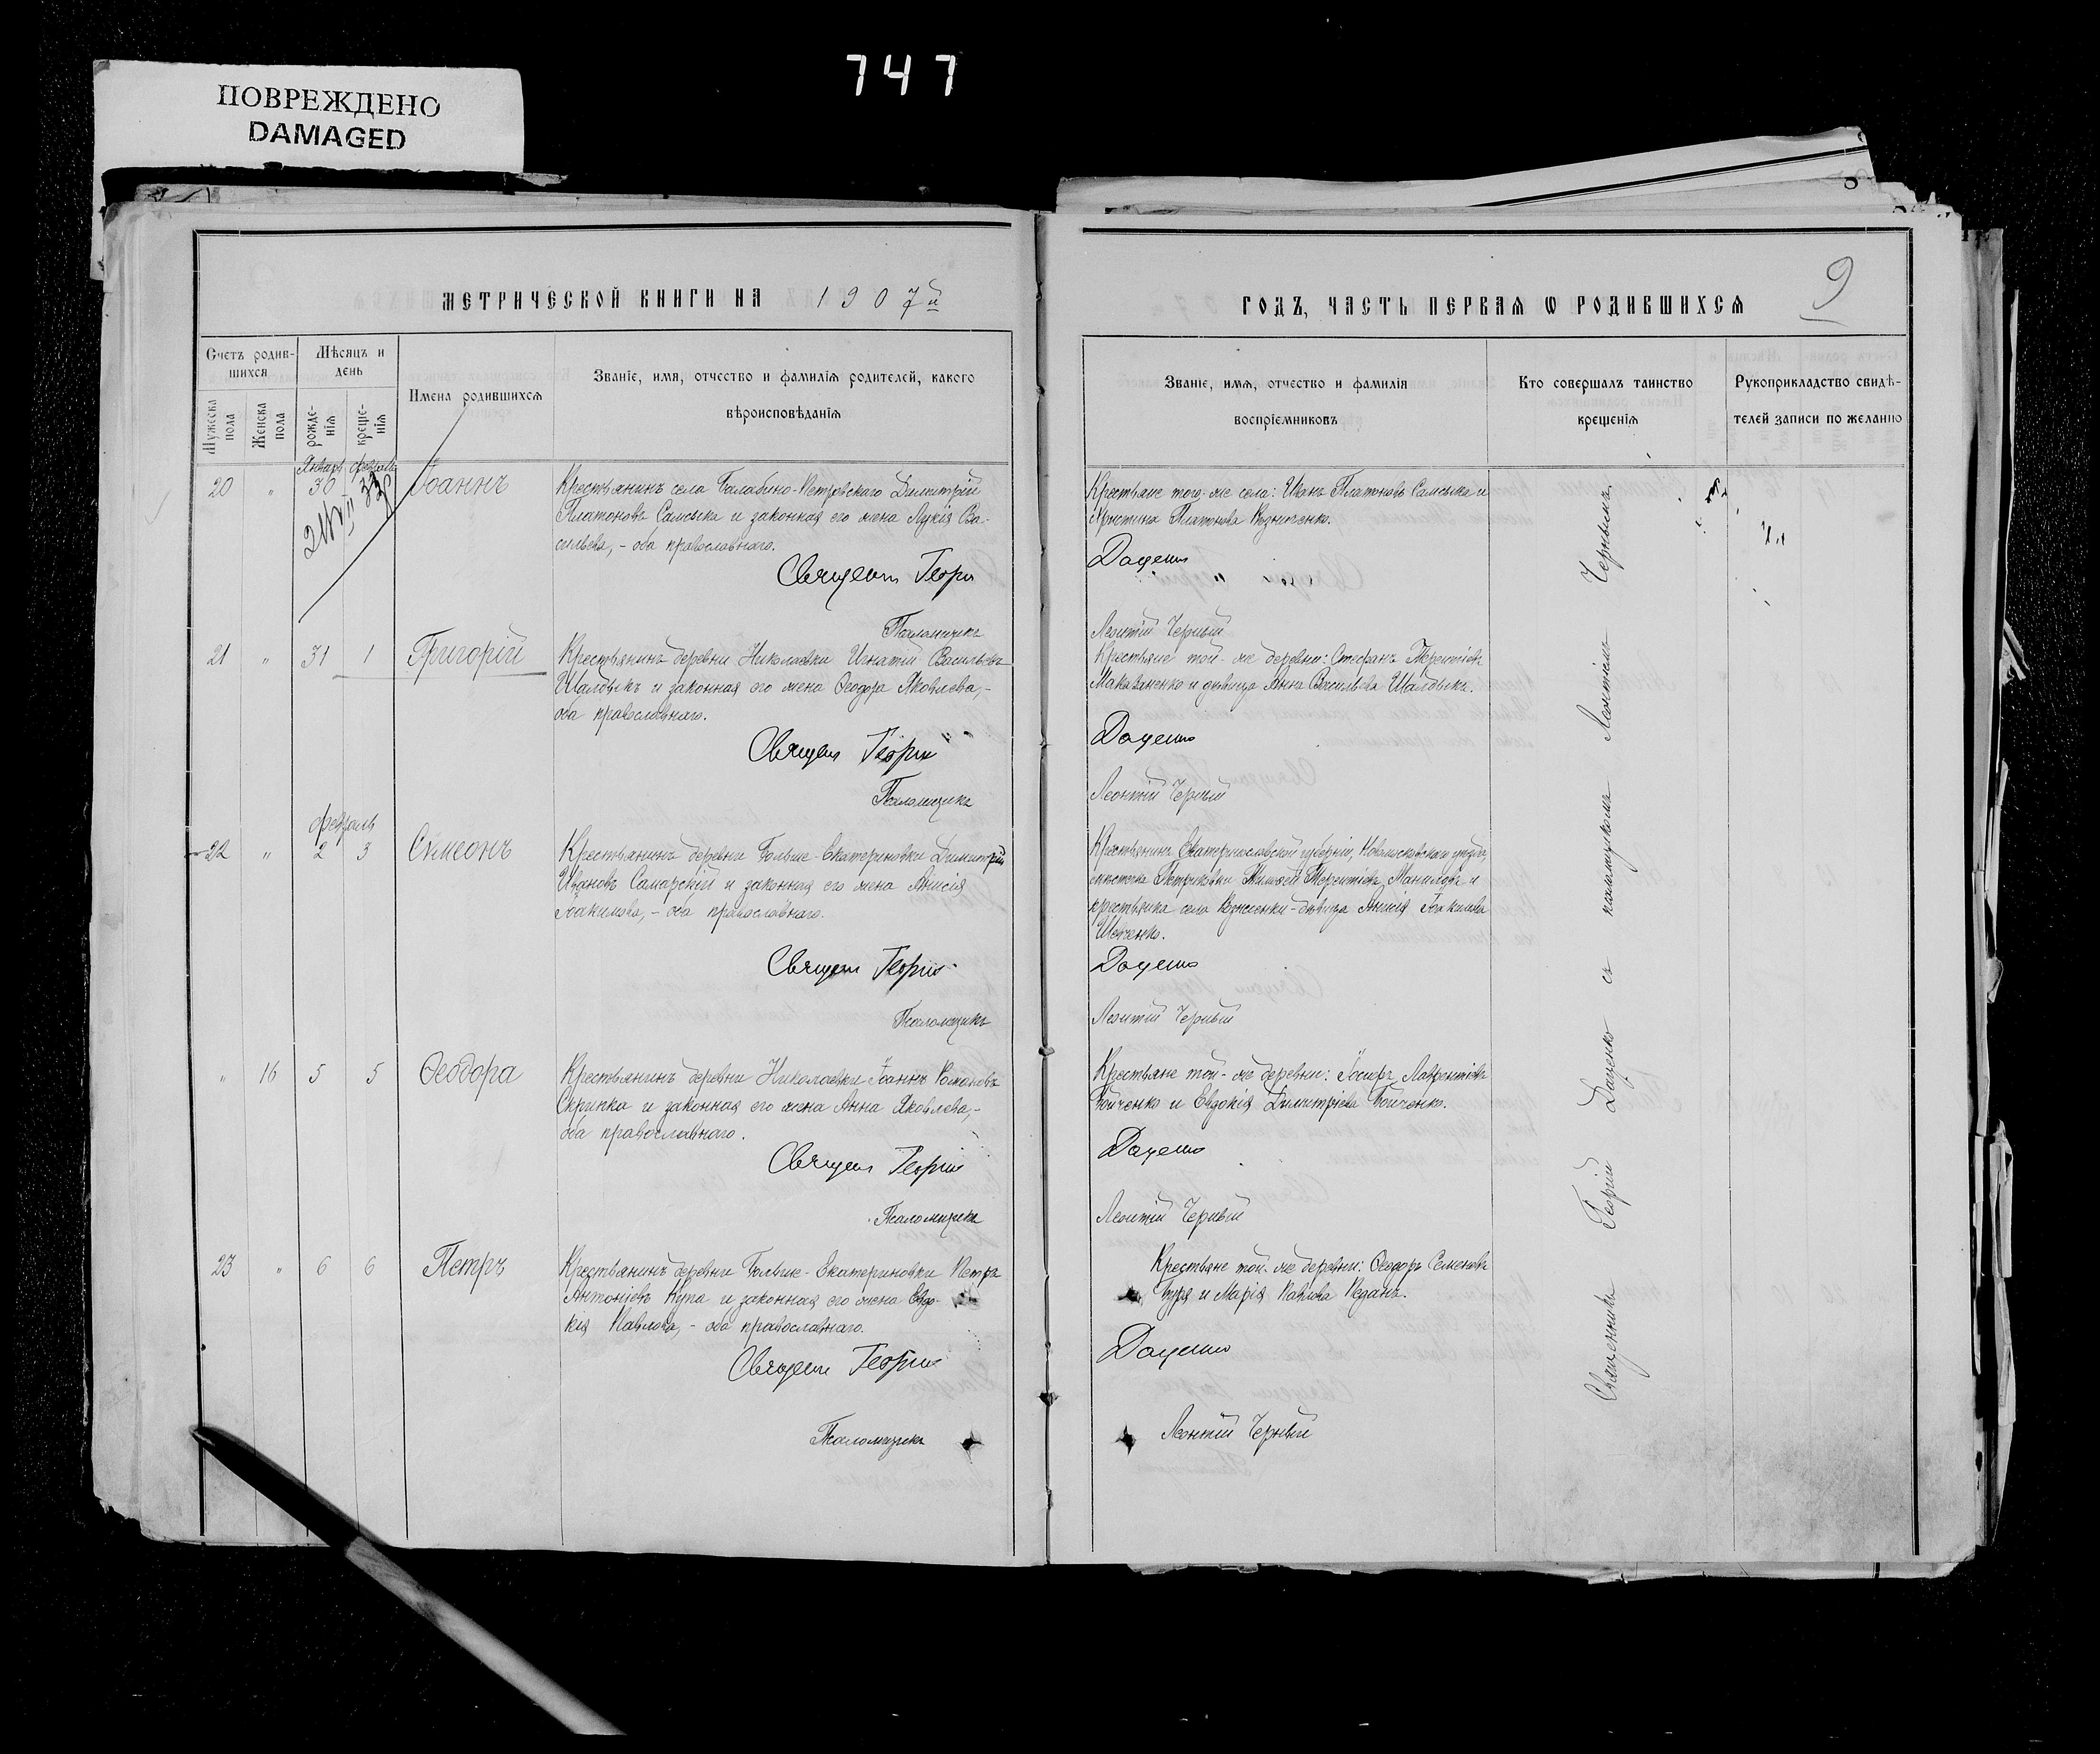 747
ПОВРЕЖДЕНО
DAMAGED
МЕТРИЧЕСКОЙ КНИГИ НА 1907й
Счетъ родив-
шихся
Мѣсяцъ и
день
Имена родившихся
Званіе, имя, отчество и фамилія родителей, какого
вѣроисповѣданія
Мужеска
пола
Женска
пола
рожде-
нія
креще-
нія
Январь февраль
20 " 30 Іоаннъ
Крестьянинъ села Балабино-Петровскаго Димитрій
Платоновъ Самсыка и законная его жена Лукія Ва-
сильева, - оба православнаго.
Священ Георгій
Псаломщикъ
21 " 31 1 Григорій
Крестьянинъ деревни Николаевки Игнатій Васильевъ
Шалдыкъ и законная его жена Ѳеодора Яковлева, -
оба православнаго.
Священ Георгій
Псаломщикъ
февраль
22 " 2 3 Симеонъ
Крестьянинъ деревни Больше-Екатериновки Димитрій
Ивановъ Самарскій и законная его жена Анисія
Іоакимова, - оба православнаго.
Священ Георгій
Псаломщикъ
" 16 5 5 Ѳеодора
Крестьянинъ деревни Николаевки Іоаннъ Романовъ
Скрипка и законная его жена Анна Яковлева, -
оба православнаго.
Священ Георгій
Псаломщикъ
23 " 6 6 Петръ
Крестьянинъ деревни Больше-Екатериновки Петръ
Антоніевъ Купа и законная его жена Евдо-
кія Павлова, - оба православнаго.
Священ Георгій
Псаломщикъ
9
ГОДЪ, ЧАСТЬ ПЕРВАЯ Ѡ РОДИВШИХСЯ
Званіе, имя, отчество и фамилія
воспріемниковъ
Кто совершалъ таинство
крещенія
Рукоприкладство свидѣ-
телей записи по желанію
Крестьяне того-же села: Иванъ Платоновъ Самсыка и
Христина Платонова Кузниченко.
Даценко
Леонтій Черный
Крестьяне той-же деревни: Стефанъ Терентіевъ
Макаваненко и дѣвица Анна Васильева Шалдыкъ.
Даценко
Леонтій Черный
Крестьянинъ Екатеринославской губерніи, Новомосковскаго уѣзда,
мѣстечка Петриковки Терентіевъ и
крестьянка села Вознесенки - дѣвица Анисія Іоакимова
Шевченко.
Даценко
Леонтій Черный
Крестьяне той-же деревни: Іосифъ Лаврентіевъ
Бойченко и Евдокія Димитріева Бойченко.
Даценко
Леонтій Черный
Крестьяне той-же деревни: Ѳеодоръ Семеновъ
Бура и Марія Павлова Педанъ.
Даценко
Леонтій Черный
Священникъ Георгій Даценко съ псаломщикомъ Леонтіемъ Чернымъ